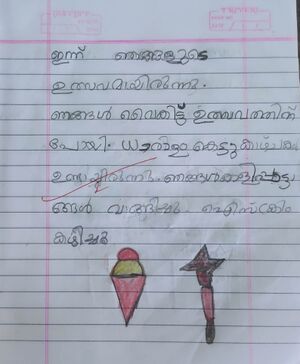 ഇന്ന് ഞങ്ങളുടെ
ഉത്സവമായിരുന്നു.
ഞങ്ങൾ വൈകിട്ട് ഉത്സവത്തിന്
പോയി. ധാരാളം കെട്ടുകാഴ്ചകൾ
ഉണ്ടായിരുന്നു. ഞങ്ങൾ കളിപ്പാട്ട
ങ്ങൾ വാങ്ങിച്ചു. ഐസ്ക്രീം
കഴിച്ചു